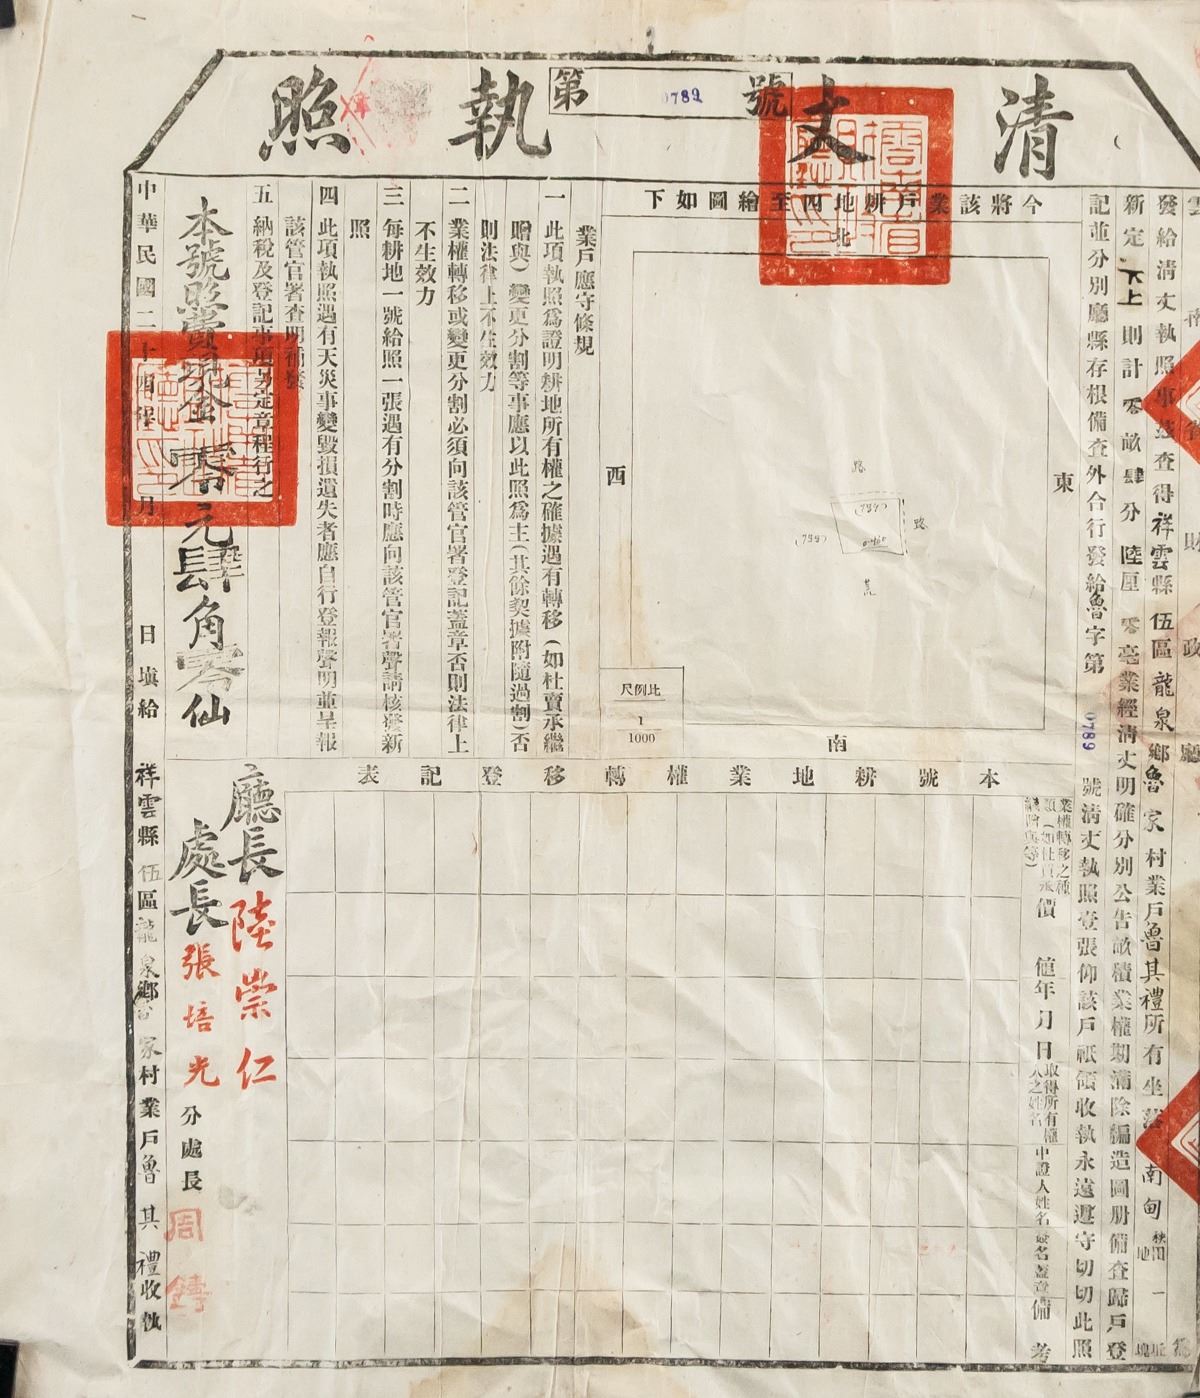 清丈執照
第 0789 號
雲南省財政廳 為
發給清丈執照事茲查得祥雲縣伍區龍泉鄉魯家村業戶魯其禮所有坐落南甸秧田地一坵塊
新定下上則計零畝肆分陸厘零毫業經清丈明確分別公告畝積業權期滿除編造圖册備查歸戶登
記並分別廳縣存根備查外合行發給魯字第0789號清丈執照壹張仰該戶祗領收執永遠遵守切切此照
今將該業戶耕地四至繪圖如下
北
東
西
南
路
路
荒
比例尺
1
1000
業戶應守條規
一 此項執照為證明耕地所有權之確據遇有轉移(如杜賣承繼
贈與)變更分割等事應以此照為主(其餘契據附隨過割)否
則法律上不生效力
二 業權轉移或變更分割必須向該管官署登記蓋章否則法律上
不生效力
三 每耕地一號給照一張遇有分割時應向該管官署聲請核發新
照
四 此項執照遇有天災事變毀損遺失者應自行登報聲明並呈報
該管官署查明補發
五 納稅及登記事項另定章程行之
本號照費現金零元肆角零仙
本號耕地業權轉移登記表
業權轉移之種類(如杜賣承繼贈與等)
價值
年月日
取得所有權人之姓名
中證人姓名
簽名蓋章
備考
廳長 陸崇仁
處長 張培光
分處長 周鑄
中華民國二十四年 月 日填給 祥雲縣伍區龍泉鄉魯家村業戶魯其禮收執